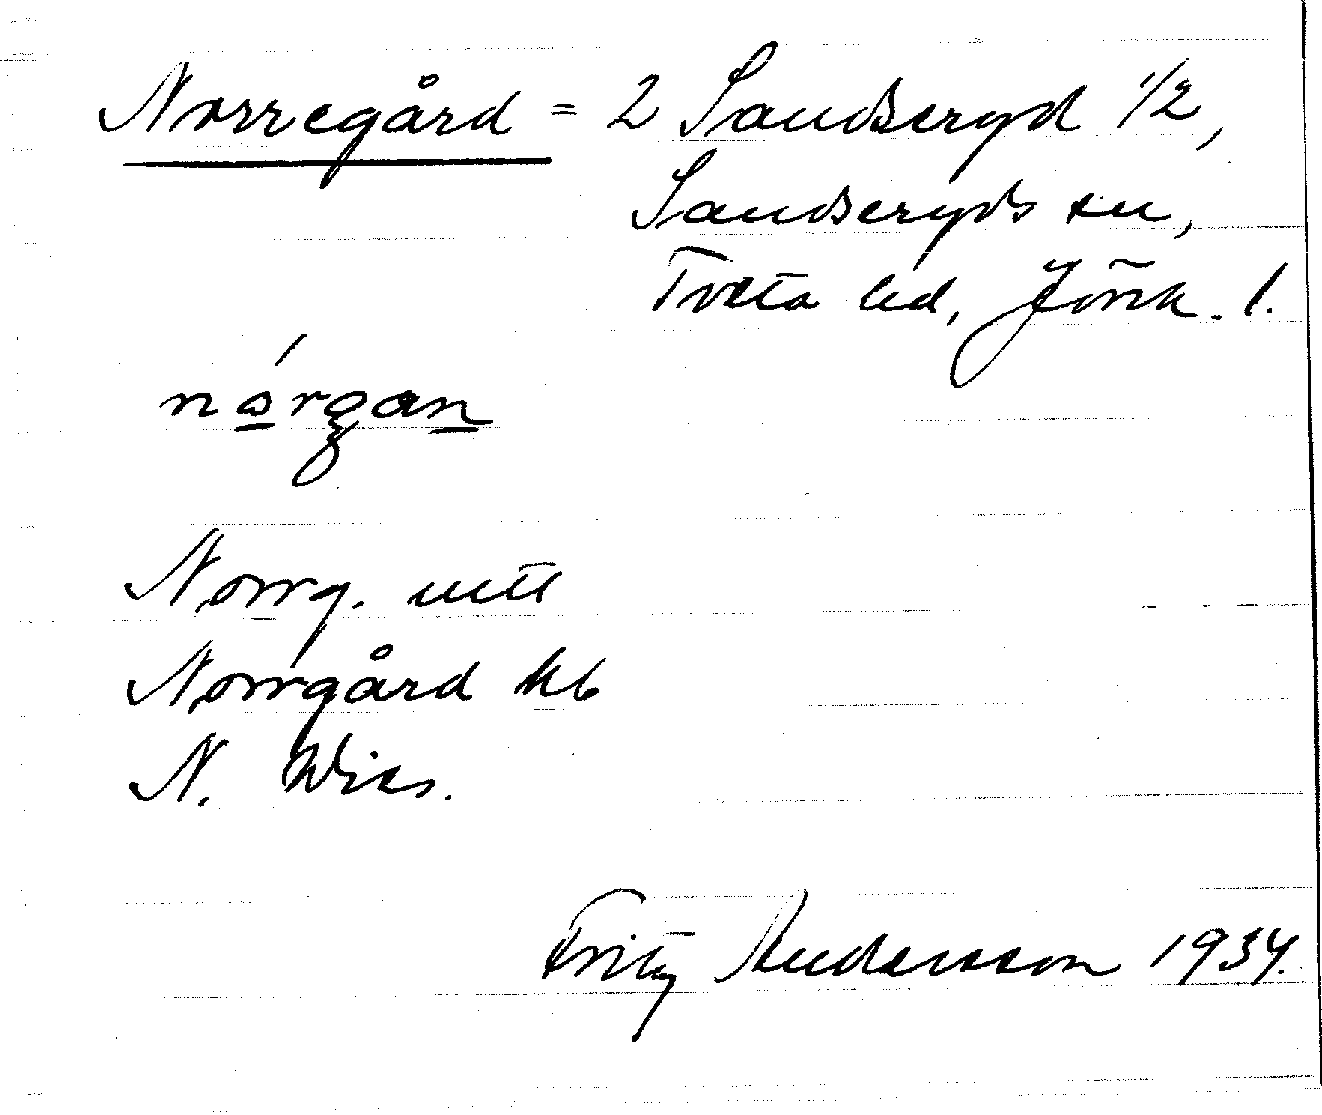 Norregård = 2 Sandseryd 1/2,
Sandseryds sn,
Tveta hd, Jönk. l.
nórgan
Norrg. utt
Norrgård kb
N. Wies.
Fritz Andersson 1934.